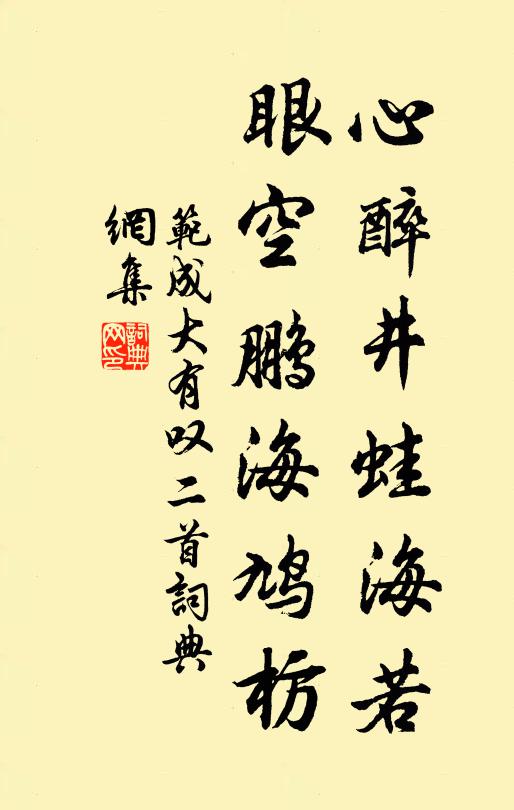 心醉井蛙海若
眼空鹏海鳩枋
範成大有叹二首詞典
網集
詞典网印